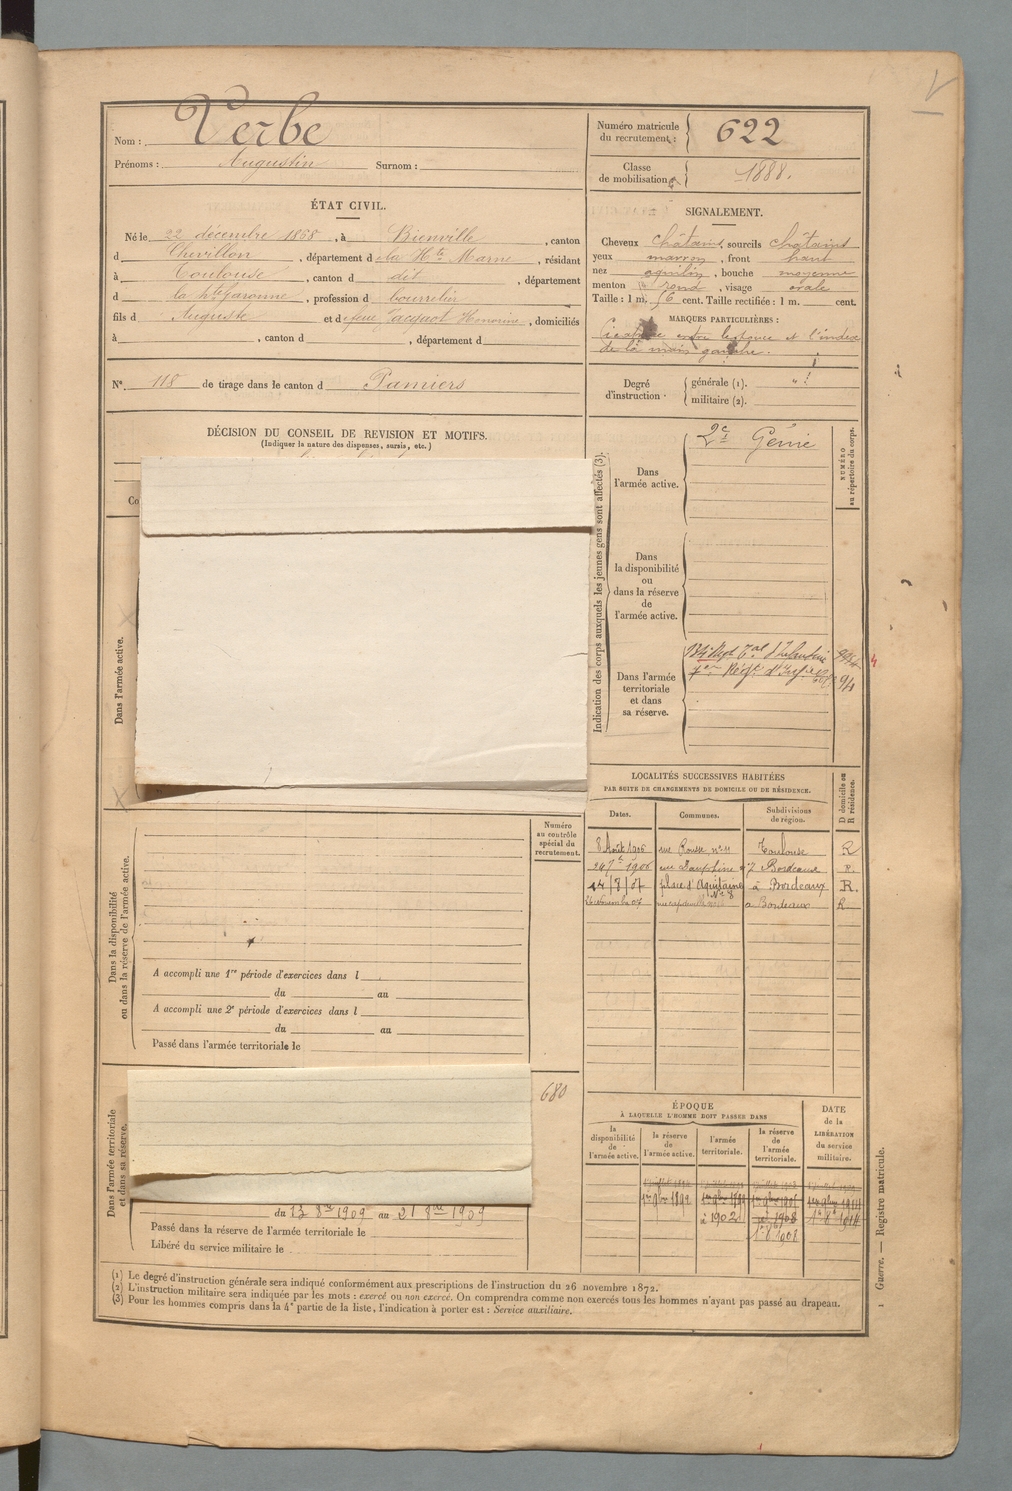 Nom : Verbe
Prénoms : Augustin Surnom :
Numéro matricule du recrutement : 622
Classe de mobilisation 1888.
ÉTAT CIVIL.
Né le 22 décembre 1868, à Bienville, canton
d Chevillon, département d e la Hte Marne, résidant
à Toulouse, canton d dit, département
d la hte Garonne, profession d bourrelier
fils d Auguste et d e feue Jacquot Honorine, domiciliés
à , canton d , département d
N° 118 de tirage dans le canton d Pamiers
SIGNALEMENT.
Cheveux châtains, sourcils châtains
yeux marron, front haut
nez aquilin, bouche moyenne
menton rond, visage ovale
Taille : 1 m. 76 cent. Taille rectifiée : 1 m. cent.
MARQUES PARTICULIÈRES :
Cicatrice entre le pouce et l'index
de la main gauche.
Degré d'instruction
générale (1).
militaire (2).
DÉCISION DU CONSEIL DE REVISION ET MOTIFS.
(Indiquer la nature des dispenses, sursis, etc.)
Co
Dans l'armée active.
Indication des corps auxquels les jeunes gens sont affectés (3).
NUMÉRO au répertoire du corps.
Dans l'armée active.
2e Génie
Dans la disponibilité ou dans la réserve de l'armée active.
Dans l'armée territoriale et dans sa réserve.
134e Régt Tal d'Infanterie
Régt d'Infie
LOCALITÉS SUCCESSIVES HABITÉES
PAR SUITE DE CHANGEMENTS DE DOMICILE OU DE RÉSIDENCE.
Dates. Communes. Subdivisions de région. D domicile ou R résidence.
8 Août 1906 rue Rousse n° 11 Toulouse R
24 7bre 1906 rue Dauphine 47 Bordeaux R.
14/8/07 place d'Aquitaine N° 8 à Bordeaux R.
a Bordeaux R
Dans la disponibilité ou dans la réserve de l'armée active.
Numéro au contrôle spécial du recrutement.
A accompli une 1re période d'exercices dans l
du au
A accompli une 2e période d'exercices dans l
du au
Passé dans l'armée territoriale le
Dans l'armée territoriale et dans sa réserve.
680
du 13 8bre 1909 au 21 8bre 1909
Passé dans la réserve de l'armée territoriale le
Libéré du service militaire le
ÉPOQUE
À LAQUELLE L'HOMME DOIT PASSER DANS
la disponibilité de l'armée active.
la réserve de l'armée active.
l'armée territoriale.
la réserve de l'armée territoriale.
DATE de la LIBÉRATION du service militaire.
1er 9bre 1892 1er 9bre 1899
(1) Le degré d'instruction générale sera indiqué conformément aux prescriptions de l'instruction du 26 novembre 1872.
(2) L'instruction militaire sera indiquée par les mots : exercé ou non exercé. On comprendra comme non exercés tous les hommes n'ayant pas passé au drapeau.
(3) Pour les hommes compris dans la 4e partie de la liste, l'indication à porter est : Service auxiliaire.
1 Guerre. — Registre matricule.